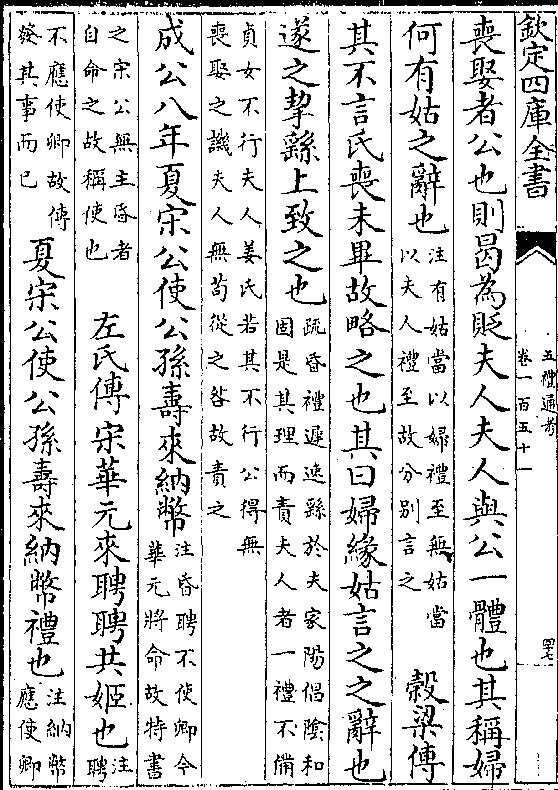 欽定四庫全書
五禮通考
卷一百五十一
四七
喪娶者公也則曷為貶夫人夫人與公一體也其稱婦
何有姑之辭也
注有姑當以婦禮至無姑當
以夫人禮至故分別言之
穀梁傳
其不言氏喪未畢故略之也其曰婦緣姑言之之辭也
遂之挈繇上致之也
疏昏禮遲速繇於夫家陽倡隂和
固是其理而責夫人者一禮不備
貞女不行夫人姜氏若其不行公得無
喪娶之譏夫人無苟從之咎故責之
成公八年夏宋公使公孫壽來納幣
注昏聘不使卿今
華元將命故特書
之宋公無主昏者
自命之故稱使也
左氏傳宋華元來聘聘共姬也
注
聘
不應使卿故傳
發其事而已
夏宋公使公孫壽來納幣禮也
注納幣
應使卿